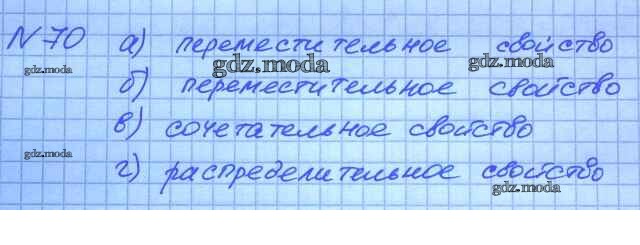 N 70 а) переместительное свойство
gdz.moda gdz.moda gdz.moda
б) переместительное свойство
в) сочетательное свойство
gdz.moda
г) распределительное свойство
gdz.moda gdz.moda